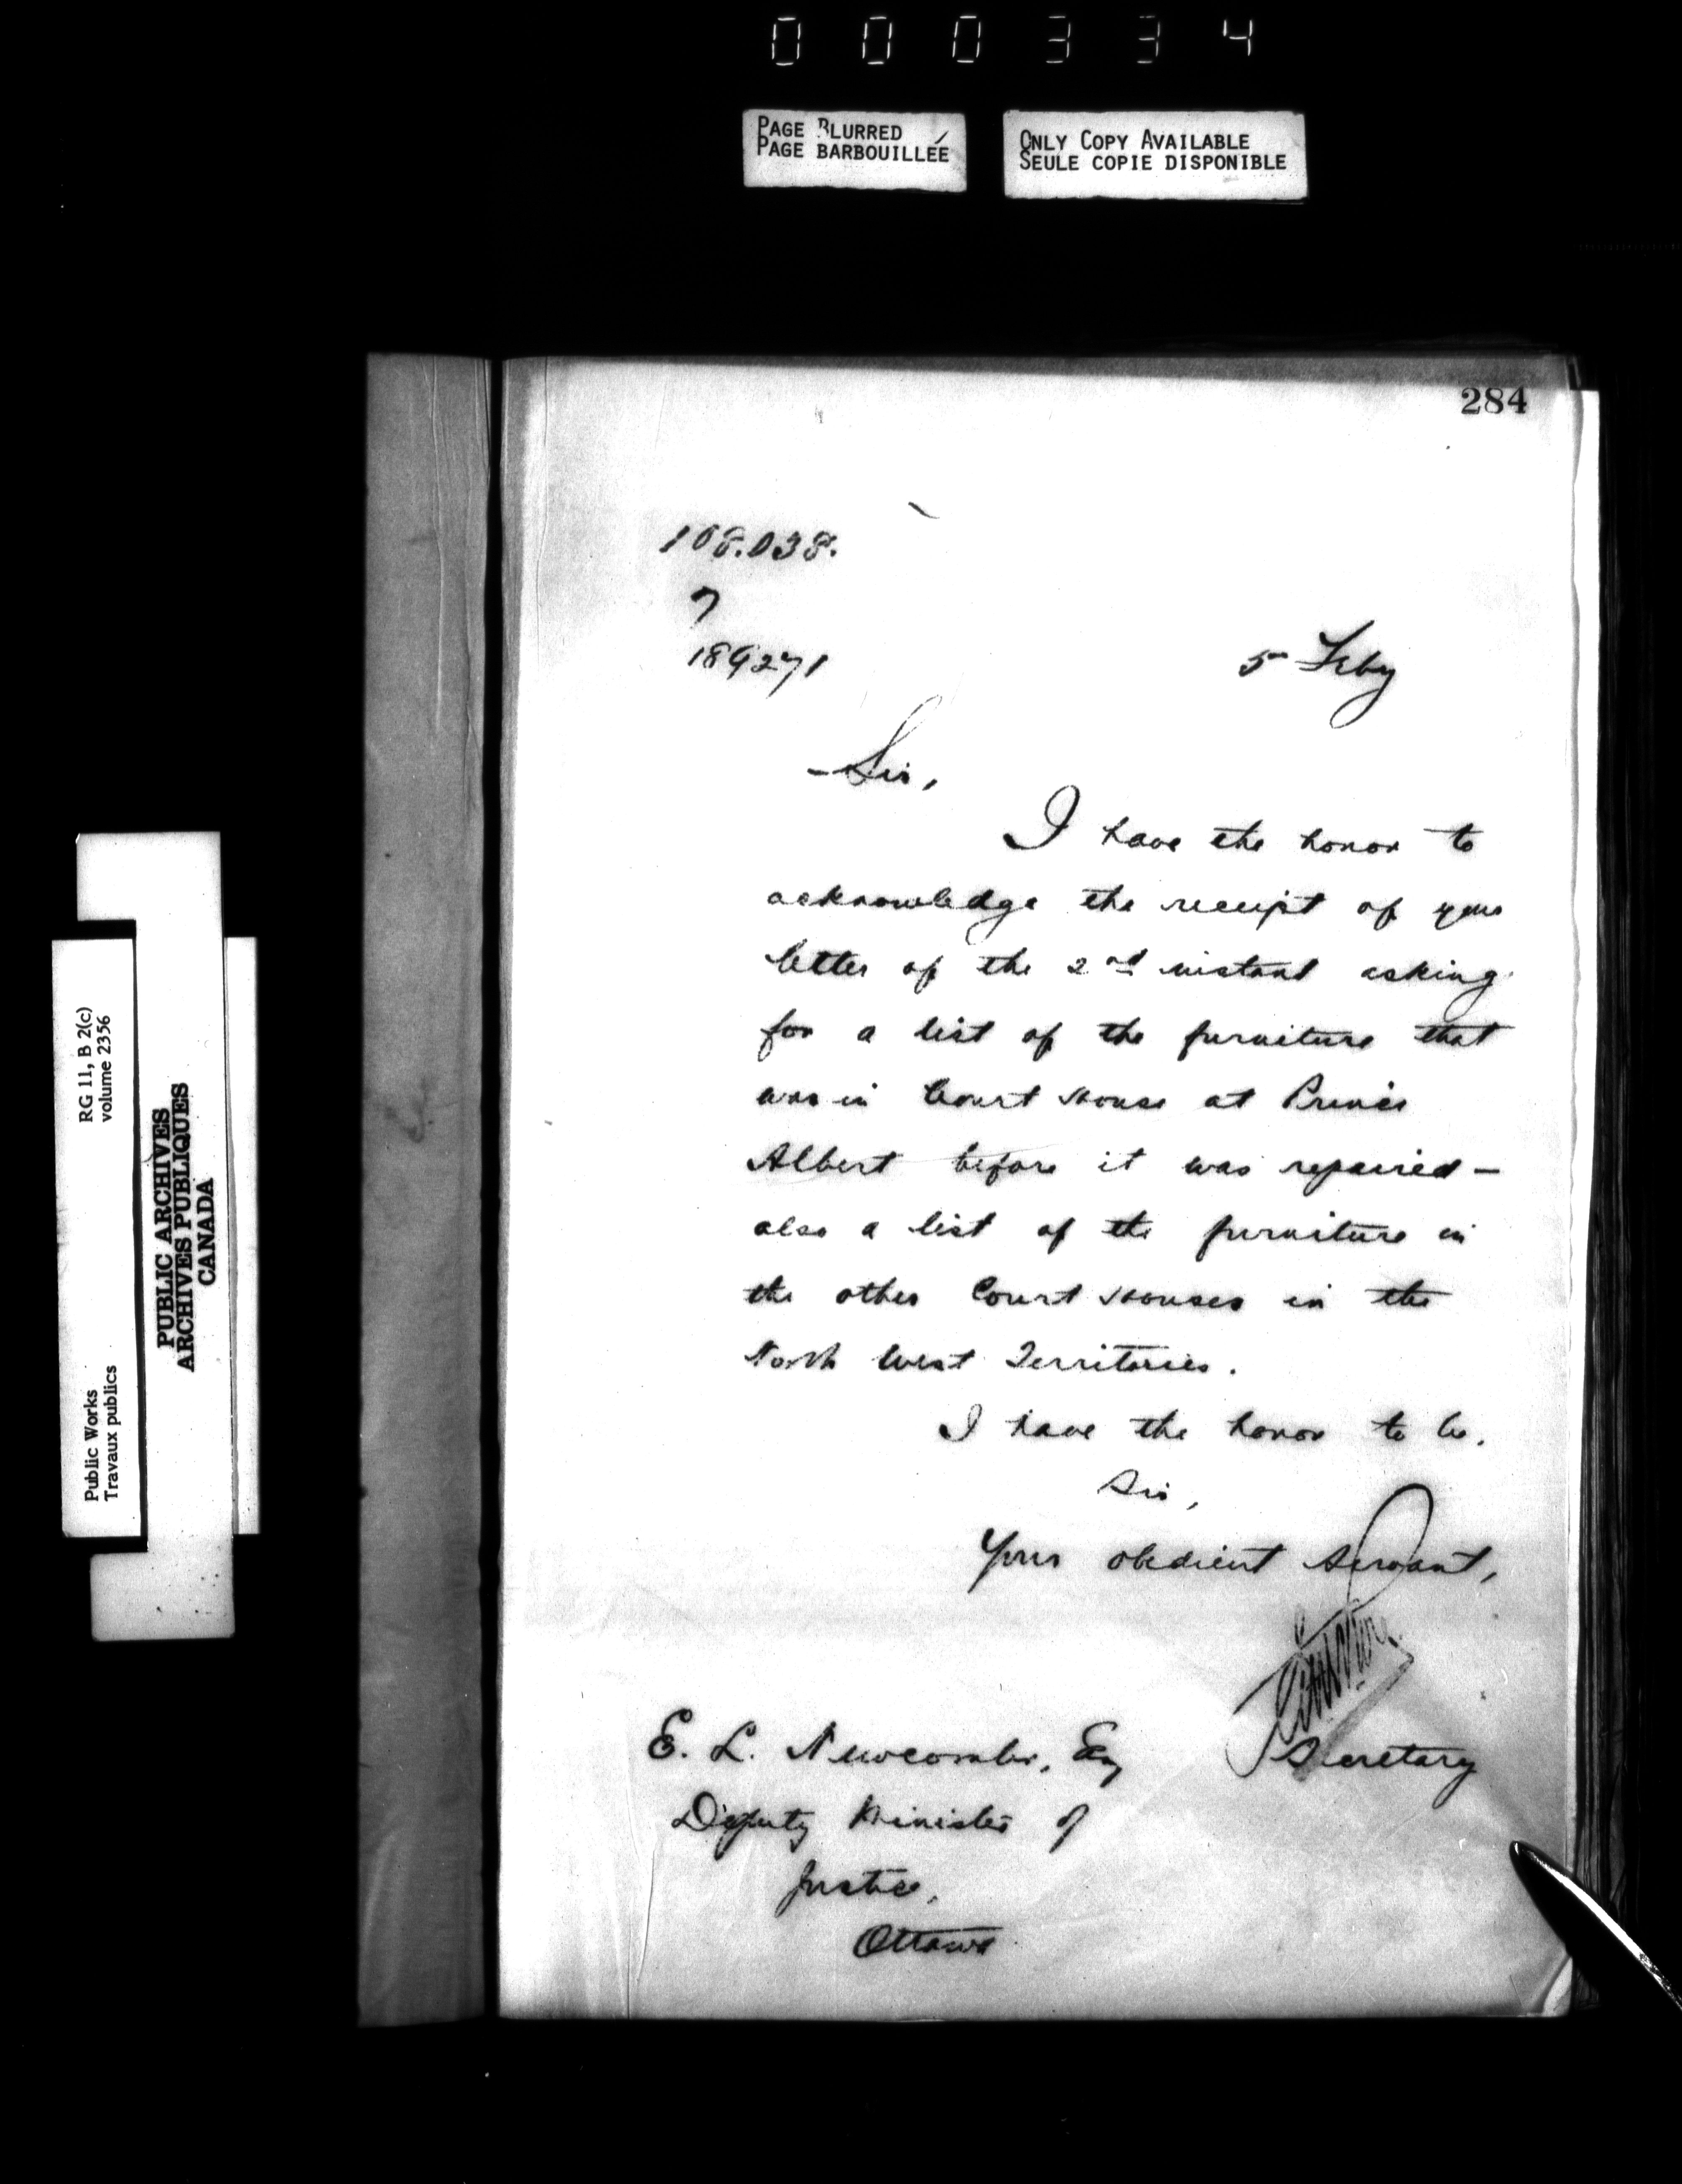 000334
PAGE BLURRED
PAGE BARBOUILLÉE
ONLY COPY AVAILABLE
SEULE COPIE DISPONIBLE
284
108.038.
7
189271
5 Feby
Sir,
I have the honor to
acknowledge the receipt of your
letter of the 2nd instant asking
for a list of the furniture that
was in Court House at Prince
Albert before it was repaired -
also a list of the furniture in
the other Court Houses in the
North West Territories.
I have the honor to be.
Sir,
Your obedient servant,
Secretary
E. L. Newcombe, Esq
Deputy Minister of
Justice,
Ottawa
RG 11, B 2(c)
volume 2356
Public Works
Travaux publics
PUBLIC ARCHIVES
ARCHIVES PUBLIQUES
CANADA